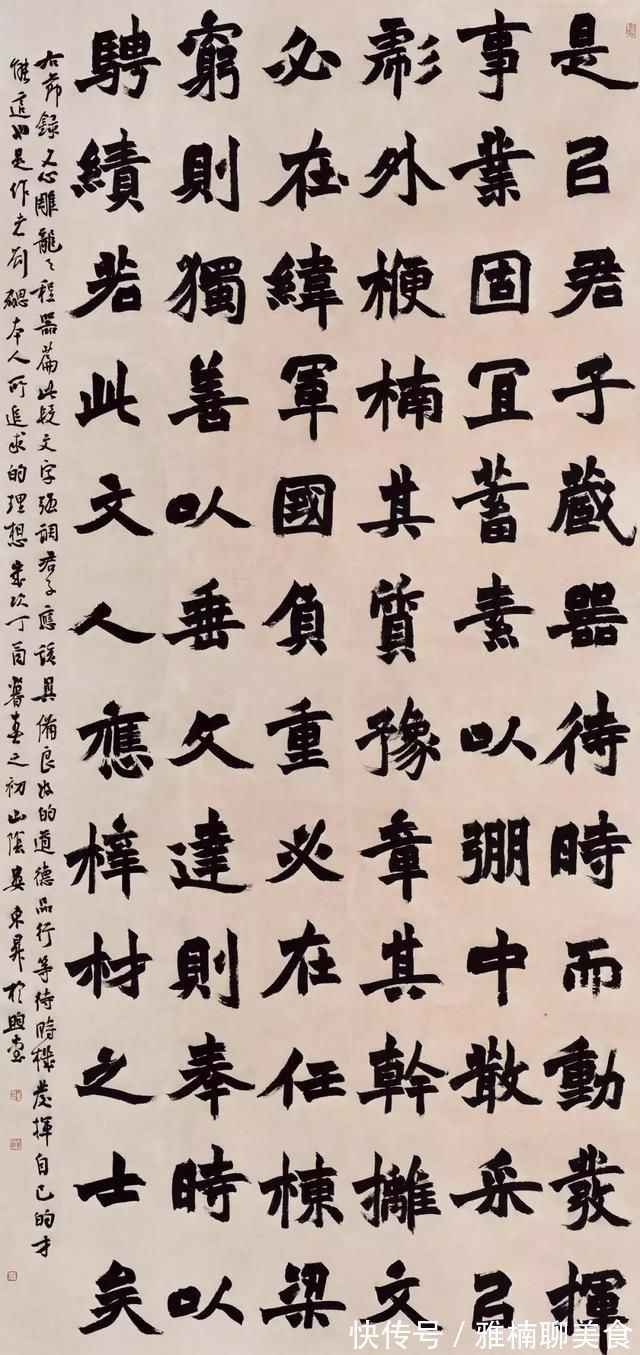 是㠯君子藏器待時而動發揮
事業固宜蓄素以弸中散采㠯
彪外楩楠其質豫章其幹攡文
必在緯軍國負重必在任棟梁
窮則獨善以垂文達則奉時以
騁績若此文人應梓材之士矣
右節錄文心雕龍之程器篇此段文字强調君子應該具備良好的道德品行等待時機發揮自己的才
能這也是作者劉勰本人所追求的理想歲次丁酉暮春之初山陰吳東昇於
快传号／雅楠聊美食